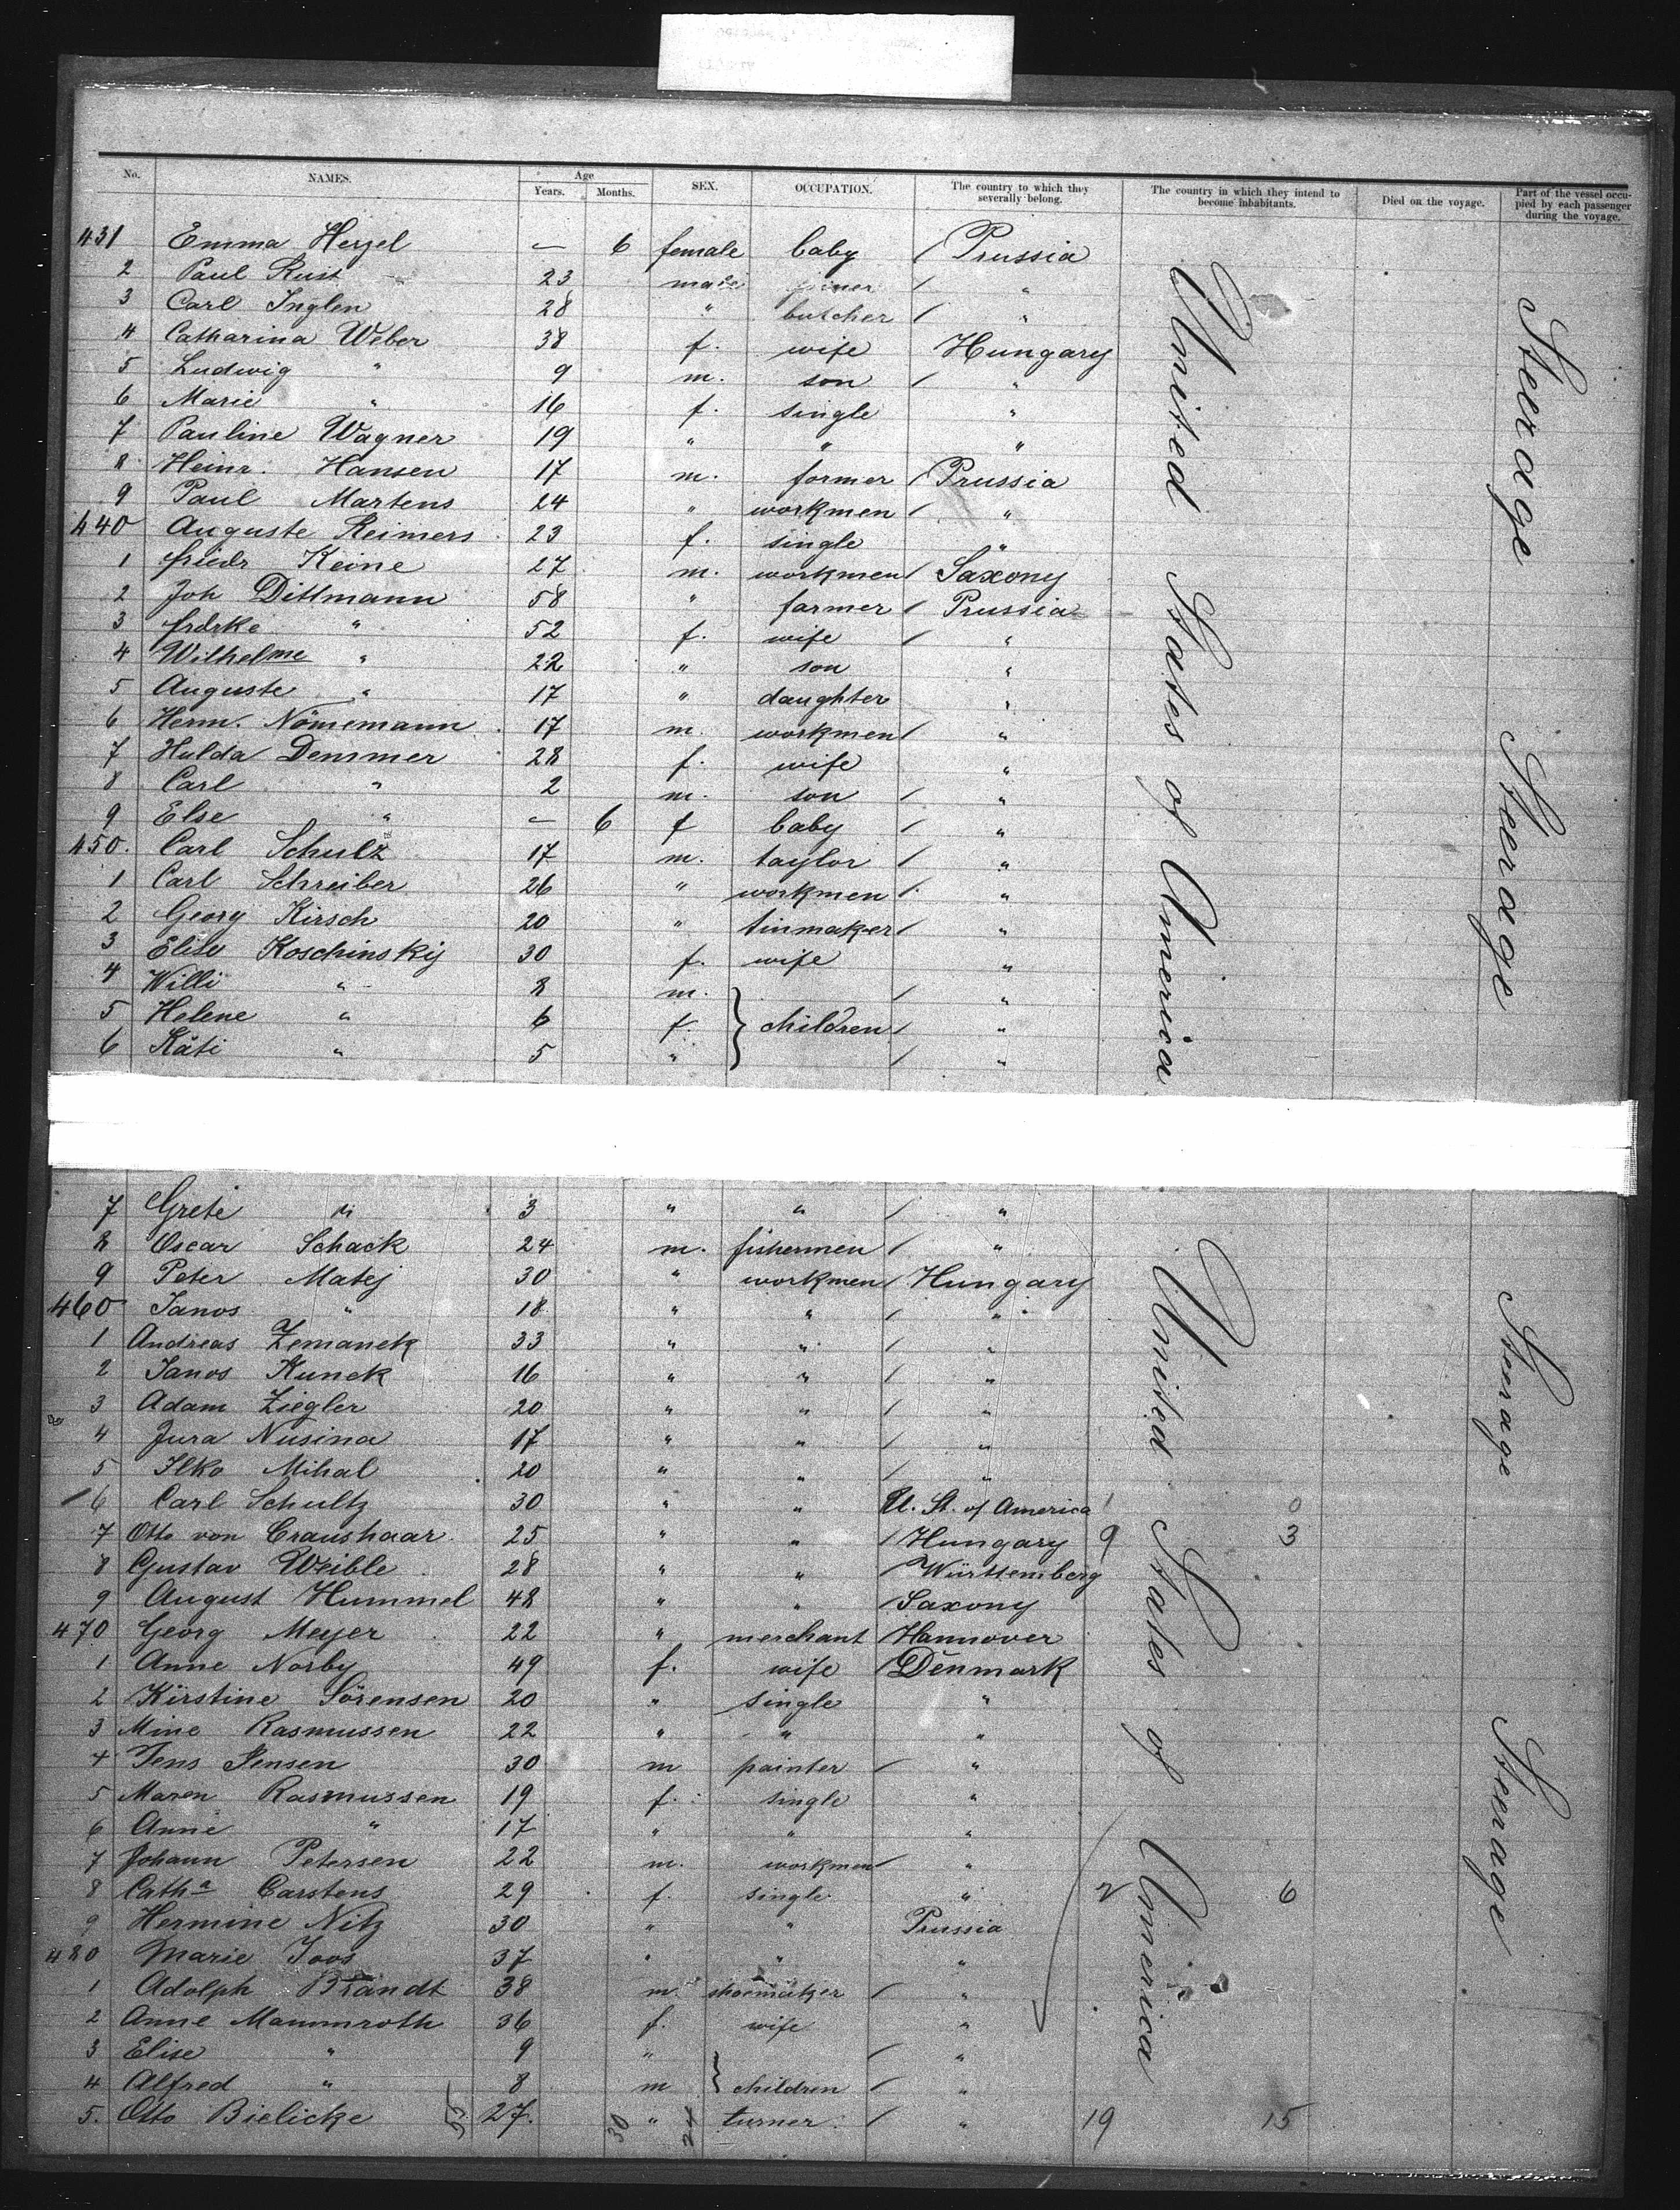 No. NAMES. Age Years. Months. SEX. OCCUPATION. The country to which they severally belong. The country in which they intend to become inhabitants. Died on the voyage. Part of the vessel occupied by each passenger during the voyage.
431 Emma Herzel — 6 female baby / Prussia
2 Paul Rust 23 male / "
3 Carl Inglen 28 " butcher / "
4 Catharina Weber 38 f. wife Hungary
5 Ludwig " 9 m. son / "
6 Marie " 16 f. single "
7 Pauline Wagner 19 " " "
8 Heinr. Hansen 17 m. former / Prussia
9 Paul Martens 24 " workmen / "
440 Auguste Reimers 23 f. single "
1 Friedr Keine 27 m. workmen / Saxony
2 Joh Dittmann 58 " farmer / Prussia
3 Frdrke " 52 f. wife / "
4 Wilhelme " 22 " son "
5 Auguste " 17 " daughter "
6 Herm. Nömemann 17 m. workmen / "
7 Hulda Demmer 28 f. wife "
8 Carl " 2 m. son / "
9 Else " — 6 f baby / "
450. Carl Schulz 17 m. taylor / "
1 Carl Schreiber 26 " workmen / "
2 Georg Kirsch 20 " tinmaker / "
3 Elise Koschinskij 30 f. wife "
4 Willi " 8 m. / "
5 Helene " 6 f. children / "
6 Käti " 5 " / "
United States of America
Steerage
Steerage
7 Grete " 3 " " / "
8 Oscar Schack 24 m. fishermen / "
9 Peter Matej 30 " workmen / Hungary
460 Janos " 18 " " / "
1 Andreas Zemanek 33 " " / "
2 Janos Kunek 16 " " / "
3 Adam Ziegler 20 " " / "
4 Jura Nusina 17 " " / "
5 Ilko Mihal 20 " " / "
6 Carl Schultz 30 " " U. St. of America 1 0
7 Otto von Craushaar 25 " " / Hungary 9 3
8 Gustav Weible 28 " " / Württemberg
9 August Hummel 48 " " / Saxony
470 Georg Meyer 22 " merchant / Hannover
1 Anne Norby 49 f. wife / Denmark
2 Kirstine Sörensen 20 " single "
3 Mine Rasmussen 22 " " "
4 Jens Jensen 30 m painter / "
5 Maren Rasmussen 19 f. single "
6 Anne " 17 " " "
7 Johann Petersen 22 m. workmen / "
8 Catha Carstens 29 f. single " 2 6
9 Hermine Nitz 30 " " Prussia
480 Marie Joos 37 " " "
1 Adolph Brandt 38 m. shoemaker / "
2 Anne Mammroth 36 f. wife "
3 Elise " 9 " / "
4 Alfred " 8 m children / "
5. Otto Bielicke 55 27. 30 " 24 turner / " 19 15
United States of America
Steerage
Steerage